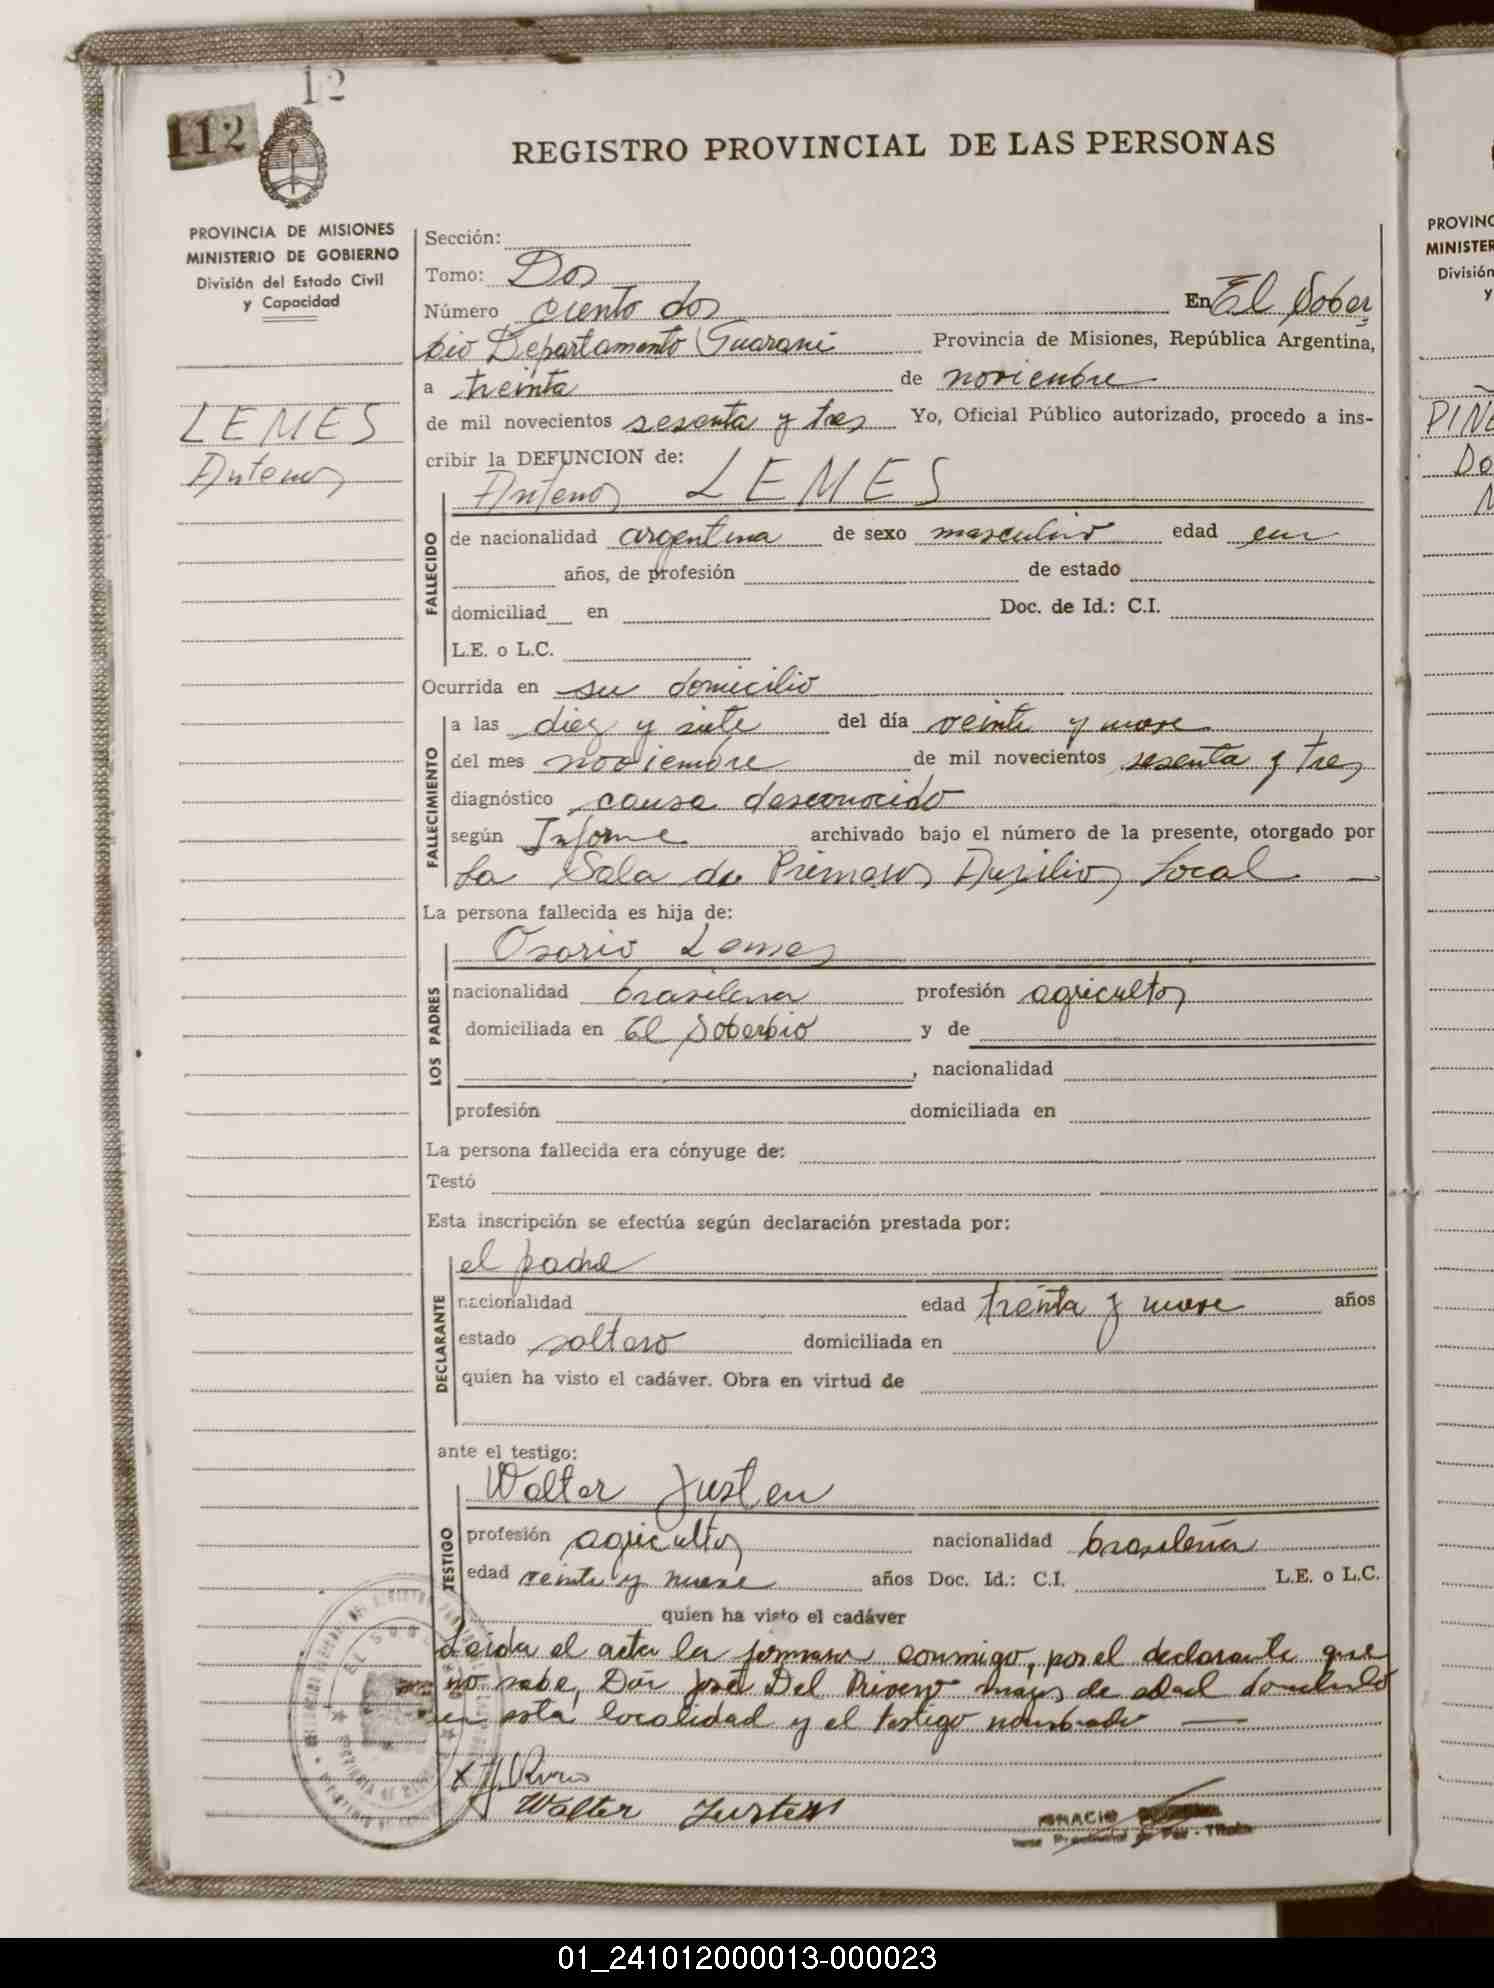 12
112
REGISTRO PROVINCIAL DE LAS PERSONAS
PROVINCIA DE MISIONES
MINISTERIO DE GOBIERNO
División del Estado Civil
y Capacidad
LEMES
Antenor
Sección:
Tomo: Dos
Número ciento dos En El Sober
bio Departamento Guarani Provincia de Misiones, República Argentina,
a treinta de noviembre
de mil novecientos sesenta y tres Yo, Oficial Público autorizado, procedo a ins-
cribir la DEFUNCION de:
Antenor LEMES
FALLECIDO
de nacionalidad argentina de sexo masculino edad un
años, de profesión de estado
domiciliad en Doc. de Id.: C.I.
L.E. o L.C.
Ocurrida en su domicilio
FALLECIMIENTO
a las diez y siete del día veinte y nueve
del mes noviembre de mil novecientos sesenta y tres
diagnóstico causa desconocido
según Informe archivado bajo el número de la presente, otorgado por
La Sala de Primeros Auxilios Local
La persona fallecida es hija de:
LOS PADRES
Osorio Lemes
nacionalidad brasilena profesión agricultor
domiciliada en El Soberbio y de
, nacionalidad
profesión domiciliada en
La persona fallecida era cónyuge de:
Testó
Esta inscripción se efectúa según declaración prestada por:
DECLARANTE
el padre
nacionalidad edad treinta y nueve años
estado soltero domiciliada en
quien ha visto el cadáver. Obra en virtud de
ante el testigo:
TESTIGO
Walter Justen
profesión agricultor nacionalidad brasileña
edad veinte y nueve años Doc. Id.: C.I. L.E. o L.C.
quien ha visto el cadáver
Leida el acta la firman conmigo, por el declarante que
no sabe, Don José Del Rivero mayor de edad domiciliado
en esta localidad y el testigo nombrado
Walter Justen
IGNACIO
PROVINC
MINISTER
División
y
PINE
Do
01_241012000013-000023